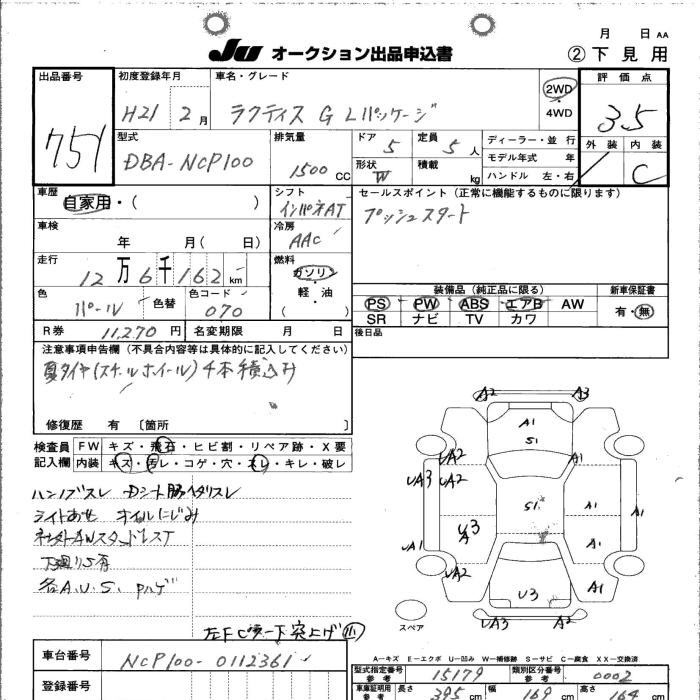 月 日 AA
JU オークション出品申込書 ②下見用
出品番号 初度登録年月 車名・グレード 2WD 4WD 評価点
751 H21 2月 ラクティス G Lパッケージ 3.5
型式 排気量 ドア 定員 ディーラー・並行 外装 内装
DBA-NCP100 1500 CC 5 5人 モデル年式 年 C
形状 W 積載 kg ハンドル 左・右
車歴 シフト セールスポイント(正常に機能するものに限ります)
自家用・( ) インパネAT プッシュスタート
車検 冷房
年 月( 日) AAC
走行 燃料
12万6千162km ガソリン
軽・油
( )
装備品(純正品に限る) 新車保証書
色 色替 色コード PS PW ABS エアB AW 有・無
パール 070 SR ナビ TV カワ
R券 11,270円 名変期限 月 日 後日品
注意事項申告欄(不具合内容等は具体的に記入してください)
夏タイヤ(スチールホイール)4本積込み
修復歴 有 〔箇所 〕
検査員 FW キズ・飛石・ヒビ割・リペア跡・X要
記入欄 内装 キズ・汚レ・コゲ・穴・スレ・キレ・破レ
ハンドブスレ Dシート脇ヘタリスレ
ライトあせ オイルにじみ
社外AWスタッドレスT
下廻りサ有
各A.U.S. Pハゲ
左FCピラー下突上げ小
A2 A3
A1
S1
UA2 A1
UA3 UA2
S1 A1 A1
UA3
UA1 A1
UA2 A1
U3
UA3 A2
スペア
A-キズ E-エクボ U-凹み W-補修跡 S-サビ C-腐食 XX-交換済
車台番号 NCP100-0112361
型式指定番号 参考 15179 類別区分番号 参考 0002
登録番号
車庫証明用 参考 長さ 395 cm 幅 169 cm 高さ 164 cm